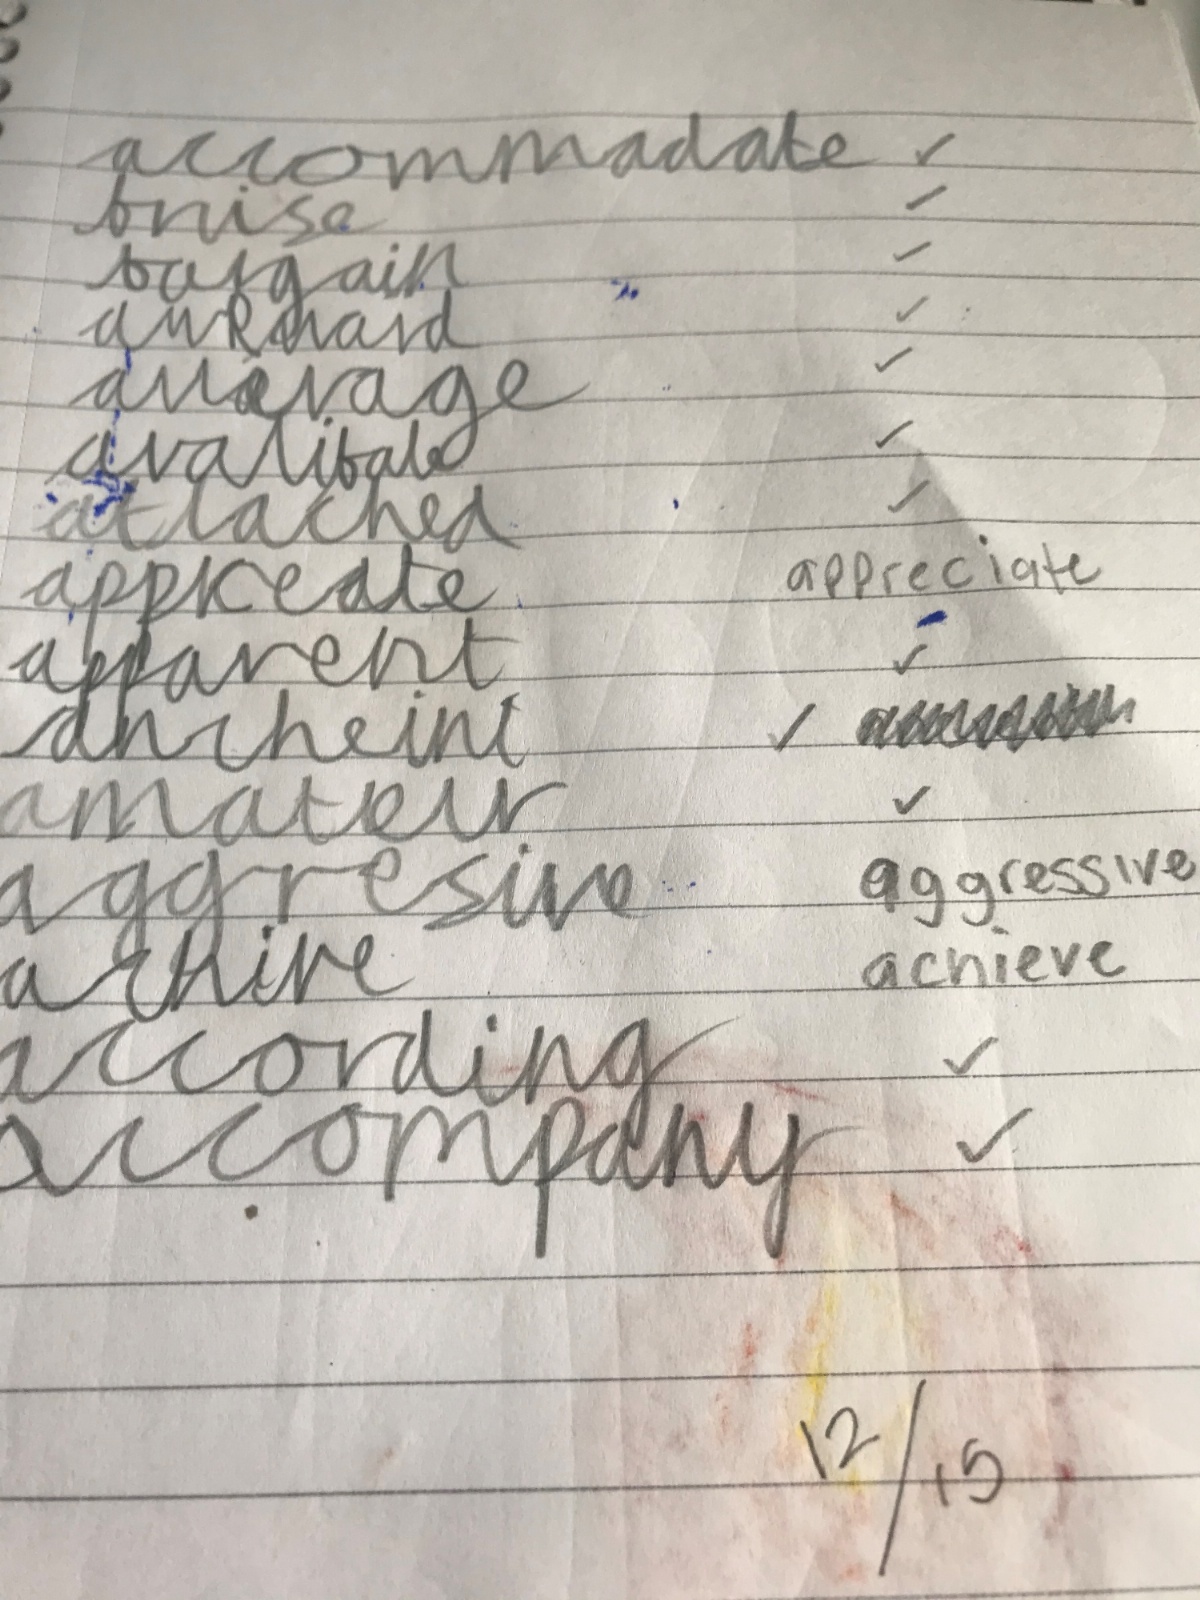 accommadate ✓
bruise ✓
bargain ✓
awkward ✓
auerage ✓
avalibale ✓
attached ✓
appreate appreciate
apparent ✓
ancheint ✓
amateur ✓
aggresive aggressive
achive achieve
according ✓
accompany ✓
12/15